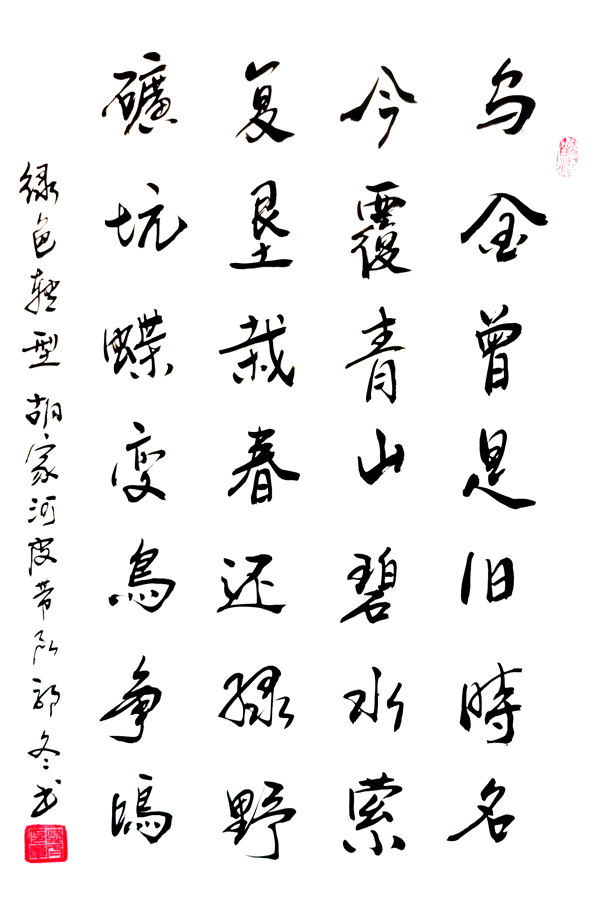 乌金曾是旧時名
今覆青山碧水萦
复垦栽春还绿野
礦坑蝶变鳥争鳴
绿色转型 胡家河皮带队郭冬书